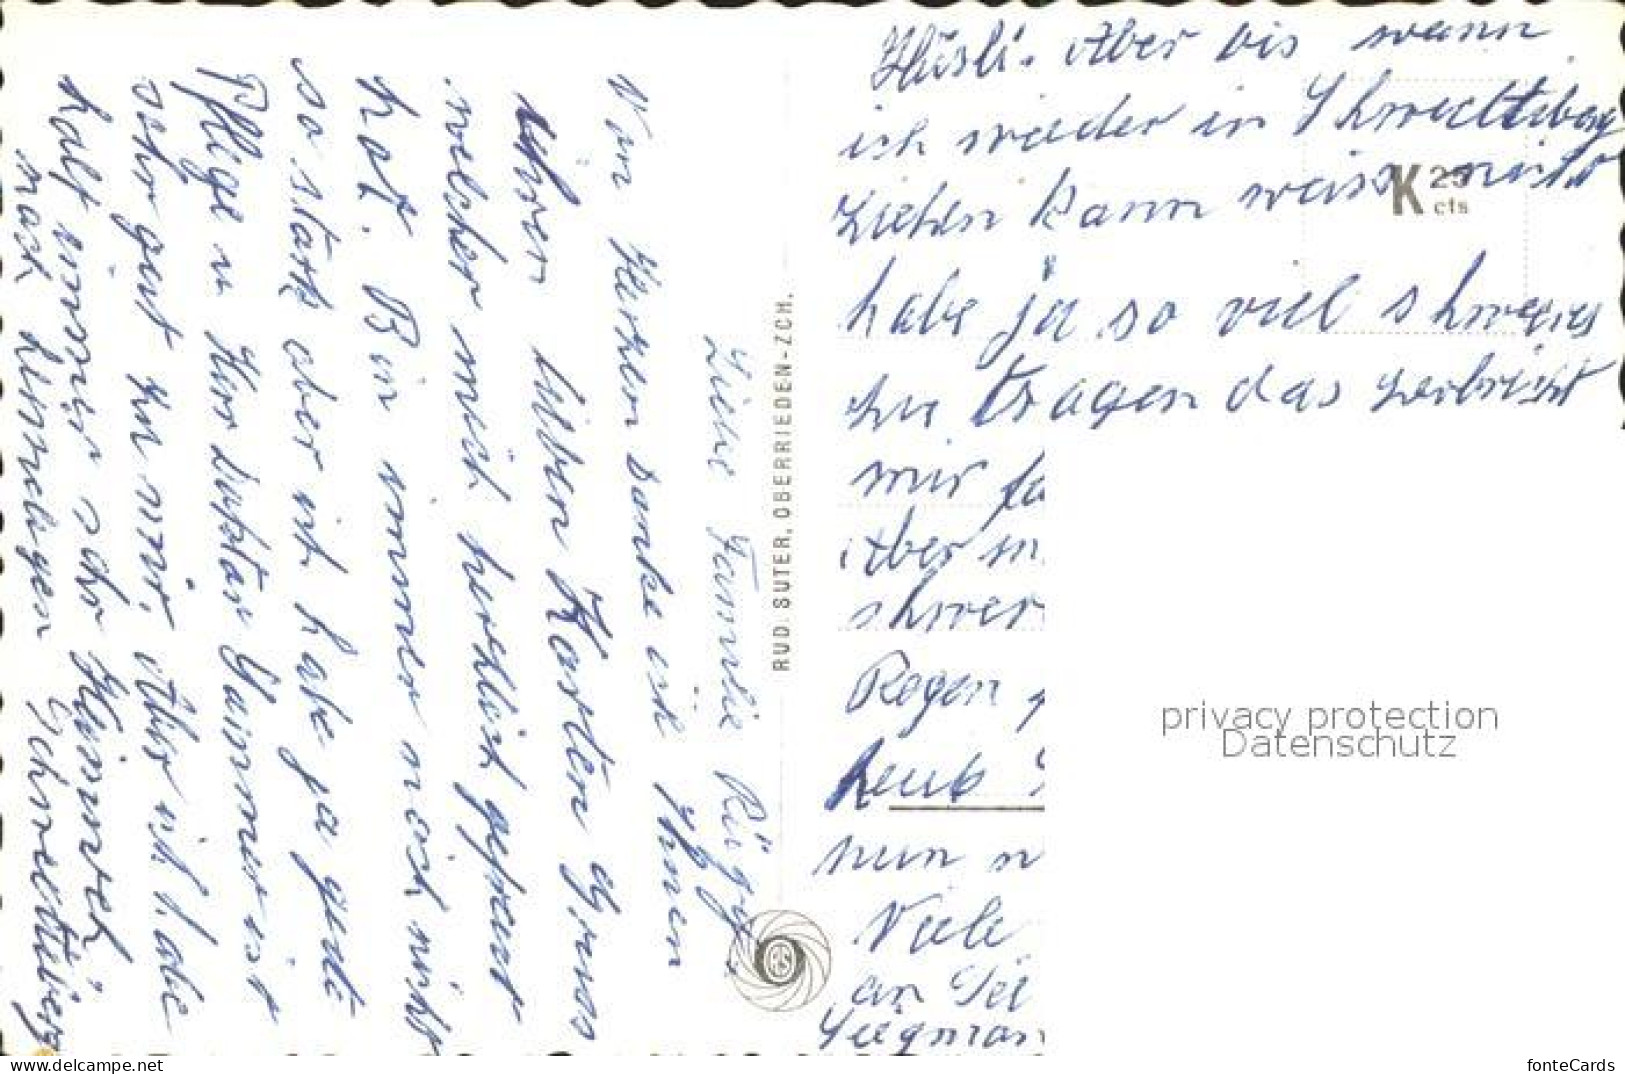 Liebe Familie Rüegg
Von Herzen danke ich Ihnen
ihren liben Karten Gruss
welcher mich herzlich gefreut
hat. Bin immer noch nicht
so stark aber ich habe ja gute
Pflege u Herr Doktor Gammer ist
sehr gut zu mir, Aber ich habe
halt immer sehr Heimweh
nach heimeligen Schwettiberg
Hüsli. Aber bis wann
ich wieder in Schwettiberg
ziehen kann weiss nicht
habe ja so viel shweres
zu tragen das zerbricht
mir
Aber
shwer
Regen
heut
nun
Viele
an
RUD. SUTER, OBERRIEDEN-ZCH.
K 25 cts
privacy protection
Datenschutz
www.delcampe.net
fonteCards